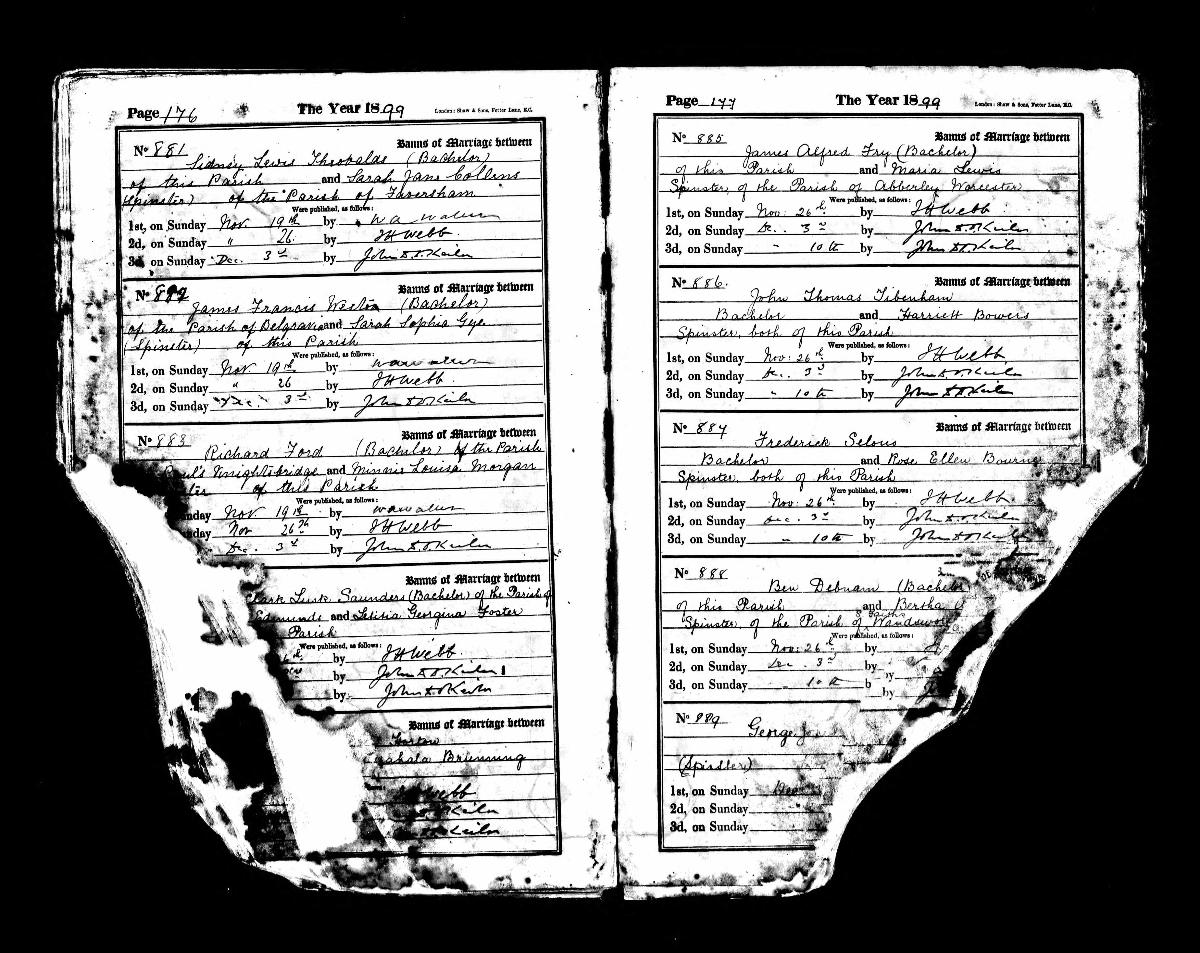 Page 176 The Year 1899 London: Shaw & Sons, Fetter Lane, E.C.
No 881 Banns of Marriage between
Sidney Lewis Theobalds (Bachelor)
of this Parish and Sarah Jane Collens
(Spinster) of the Parish of Faversham
Were published, as follows:
1st, on Sunday Nov. 19th by
2d, on Sunday " 26 by JH Webb.
3d, on Sunday Dec. 3rd by
No 882 Banns of Marriage between
James Francis Weston (Bachelor)
of the Parish of Belgravia and Sarah Sophia Gye
(Spinster) of this Parish
Were published, as follows:
1st, on Sunday Nov 19th by
2d, on Sunday " 26 by JH Webb.
3d, on Sunday Dec. 3rd by
No 883 Banns of Marriage between
Richard Ford (Bachelor) of the Parish
Knightsbridge and Minnie Louisa Morgan
of this Parish
Were published, as follows:
Nov 19th by
Nov 26th by JH Webb
Dec. 3rd by
Banns of Marriage between
Saunders (Bachelor) of the Parish of
Edmunds and Letitia Georgina Foster
Parish
Were published, as follows:
by JH Webb.
by
by
Banns of Marriage between
Brünning
Webb
Page 177 The Year 1899 London: Shaw & Sons, Fetter Lane, E.C.
No 885 Banns of Marriage between
James Alfred Fry (Bachelor)
of this Parish and Maria Lewis
Spinster, of the Parish of Abberley Worcester
Were published, as follows:
1st, on Sunday Nov: 26th by JH Webb
2d, on Sunday Dec. 3rd by
3d, on Sunday " 10th by
No 886. Banns of Marriage between
John Thomas Tibenham
Bachelor and Harriett Bowers
Spinster, both of this Parish
Were published, as follows:
1st, on Sunday Nov: 26th by JH Webb
2d, on Sunday Dec. 3rd by
3d, on Sunday " 10th by
No 887 Banns of Marriage between
Frederick Selous
Bachelor and Rose Ellen Bourne
Spinster, both of this Parish
Were published, as follows:
1st, on Sunday Nov: 26th by JH Webb.
2d, on Sunday Dec. 3rd by
3d, on Sunday " 10th by
No 888 Banns of Marriage between
Ben Debnam (Bachelor
of this Parish and Bertha
Spinster, of the Parish of
Were published, as follows:
1st, on Sunday Nov: 26th by
2d, on Sunday Dec. 3rd by
3d, on Sunday " 10th by
No 889
George
(Spinster)
1st, on Sunday Dec
2d, on Sunday
3d, on Sunday